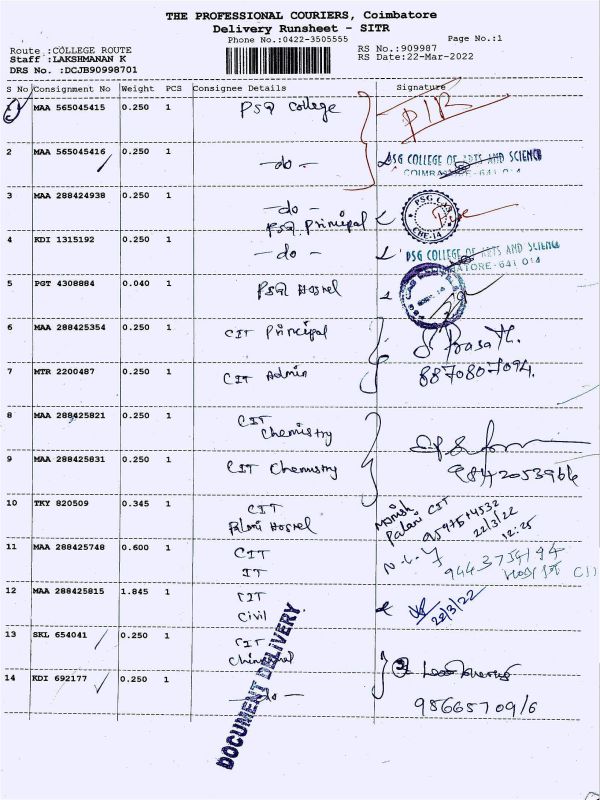 THE PROFESSIONAL COURIERS, Coimbatore
Delivery Runsheet - SITR
Phone No.:0422-3505555
Page No.:1
Route :COLLEGE ROUTE
RS No.:909987
Staff :LAKSHMANAN K
RS Date:22-Mar-2022
DRS No. :DCJB90998701
S No Consignment No Weight PCS Consignee Details Signature
1 MAA 565045415 0.250 1 PSG College
2 MAA 565045416 0.250 1 -do- PSG COLLEGE OF ARTS AND SCIENCE
COIMBATORE-641 014
3 MAA 288424938 0.250 1 -do- PSG CAS
PSG Principal CBE-14
4 KDI 1315192 0.250 1 -do- PSG COLLEGE OF ARTS AND SCIENCE
COIMBATORE-641 014
5 PGT 4308884 0.040 1 PSG Hostel
6 MAA 288425354 0.250 1 CIT Principal
7 MTR 2200487 0.250 1 CIT Admin 8870807094.
8 MAA 288425821 0.250 1 CIT
Chemistry
9 MAA 288425831 0.250 1 CIT Chemistry
10 TKY 820509 0.345 1 CIT Manish
Palani Hostel Palani CIT
22/3/22
12:25
11 MAA 288425748 0.600 1 CIT
IT
12 MAA 288425815 1.845 1 CIT
Civil 22/3/22
13 SKL 654041 0.250 1 CIT
14 KDI 692177 0.250 1 -do-
9866571096
DOCUMENT DELIVERY